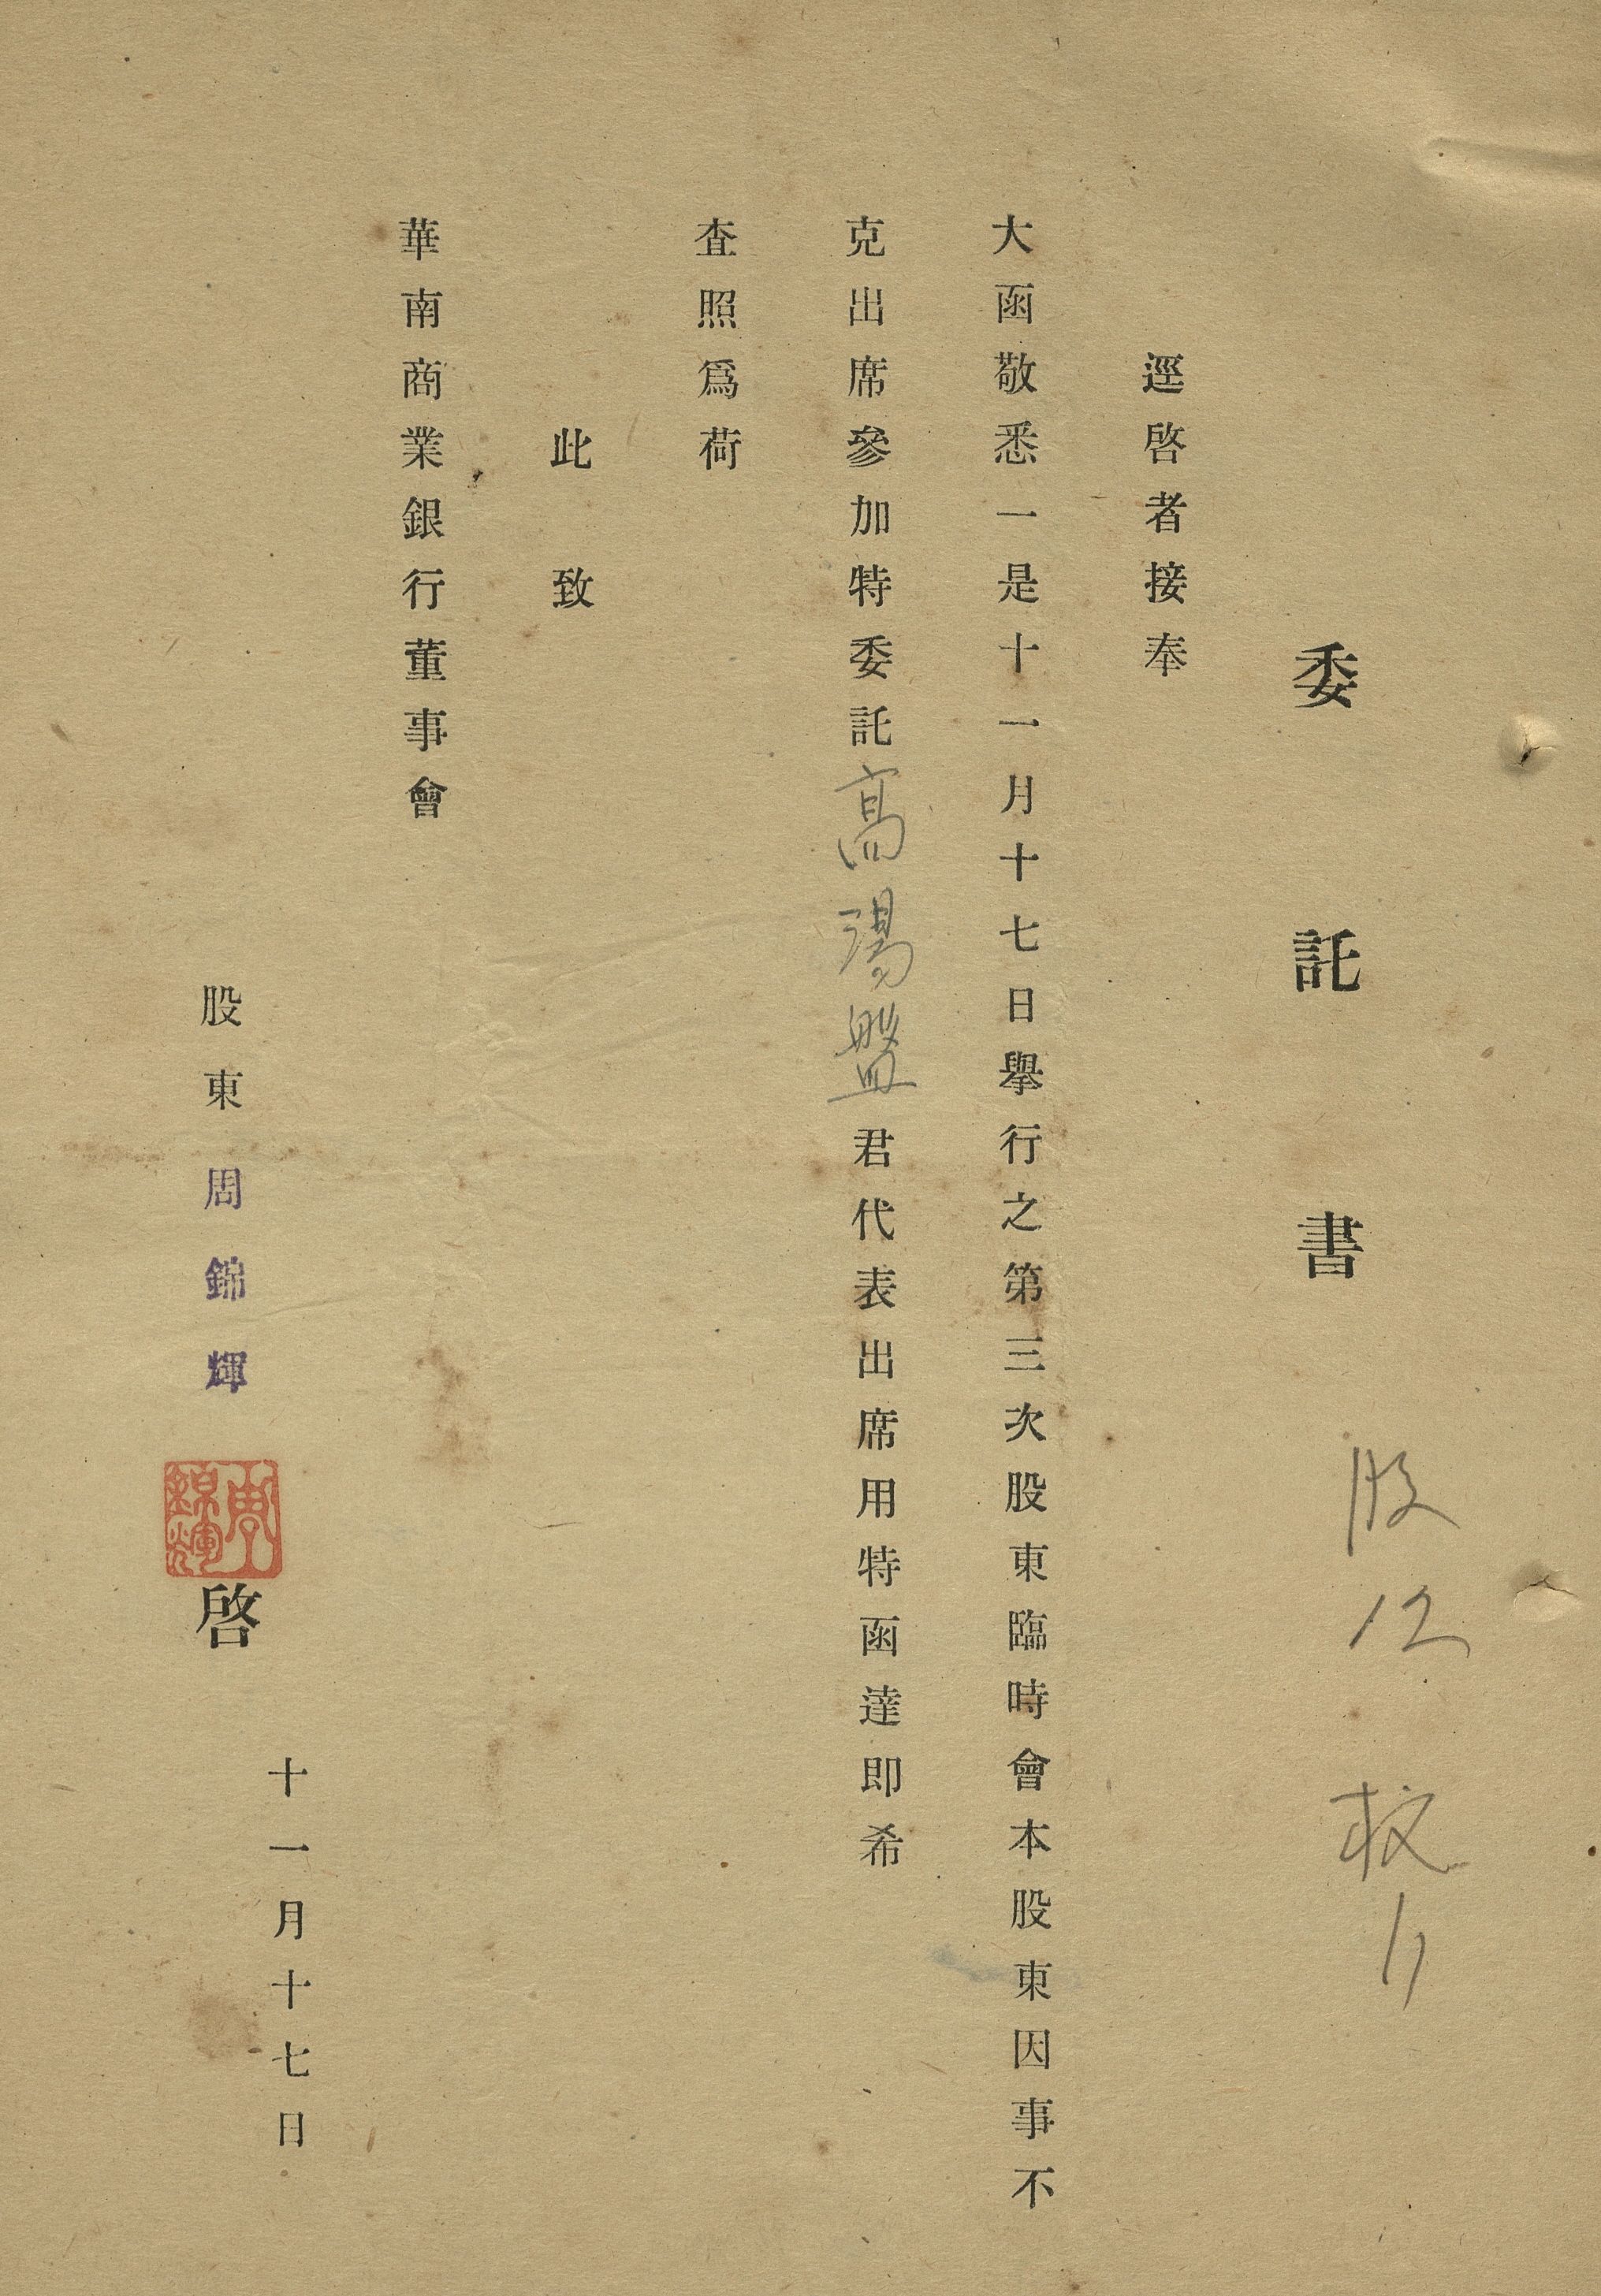 委託書
股 12 权 11
逕啓者接奉
大函敬悉一是十一月十七日舉行之第三次股東臨時會本股東因事不
克出席參加特委託高湯盤君代表出席用特函達即希
查照爲荷
此致
華南商業銀行董事會
十一月十七日
股東周錦輝
周錦輝
啓